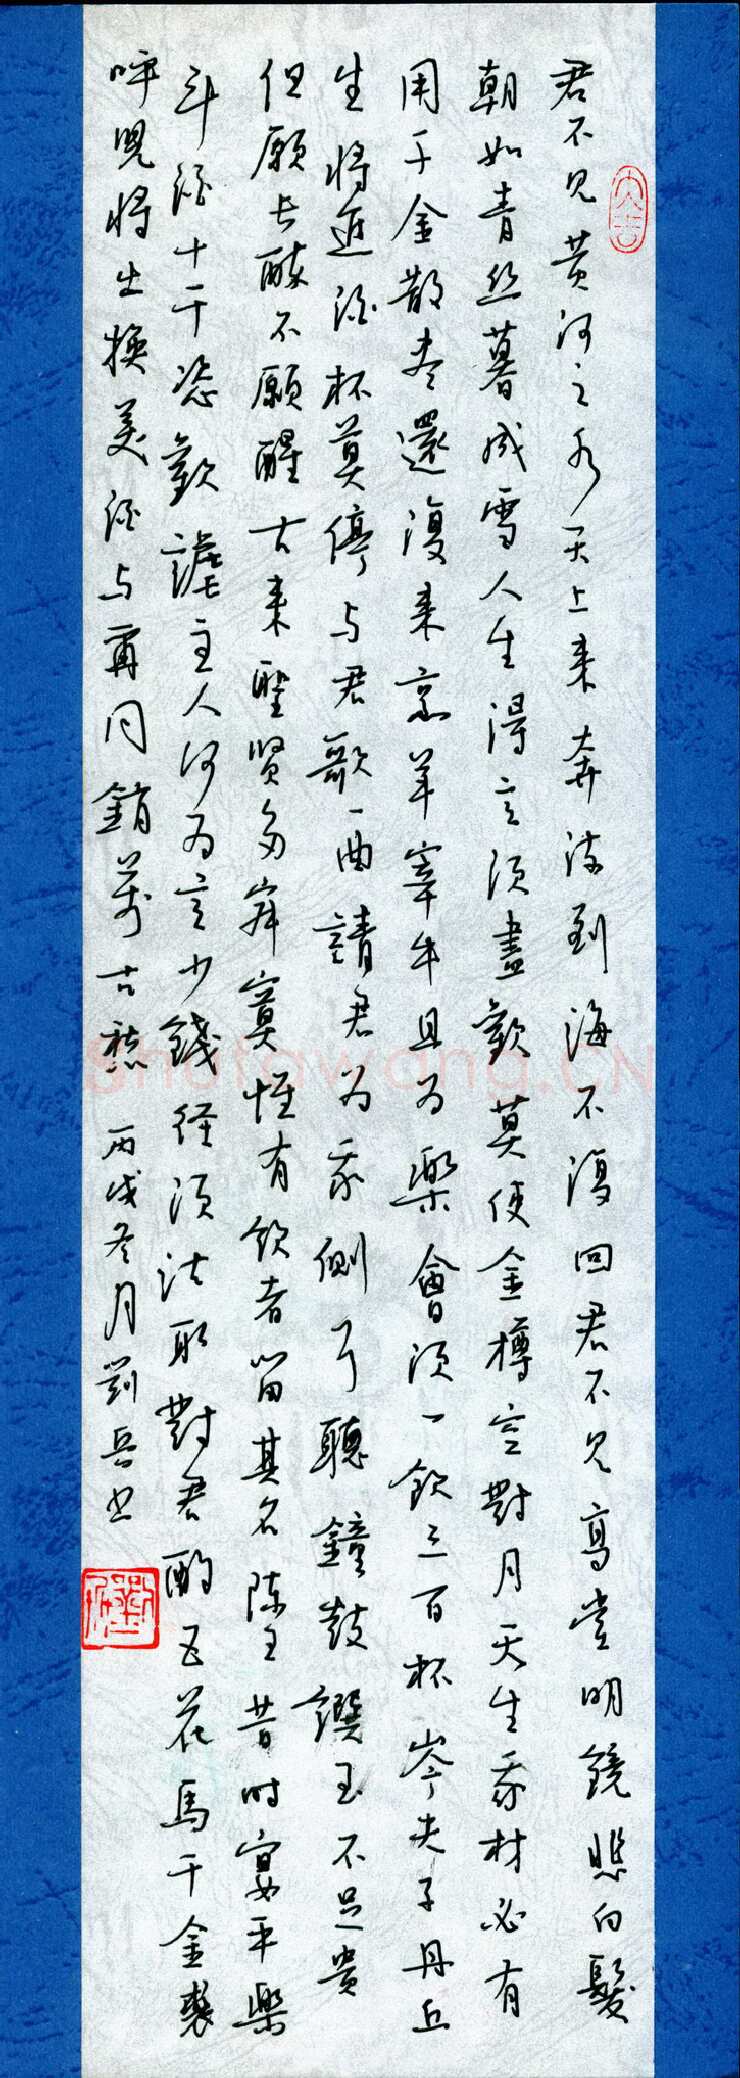 大吉
君不见黄河之水天上来奔流到海不復回君不见高堂明鏡悲白髮
朝如青丝暮成雪人生得意须盡歡莫使金樽空對月天生我材必有
用千金散尽還復来烹羊宰牛且为樂會须一飲三百杯岑夫子丹丘
生将進酒杯莫停与君歌一曲請君为我側耳聽鐘鼓饌玉不足贵
但願长醉不願醒古来聖賢多寂寞惟有飲者留其名陈王昔时宴平樂
斗酒十千恣歡謔主人何为言少錢径须沽取對君酌五花馬千金裘
呼児将出换美酒与爾同銷萬古愁 丙戌冬月劉兵书
Shufawang.CN